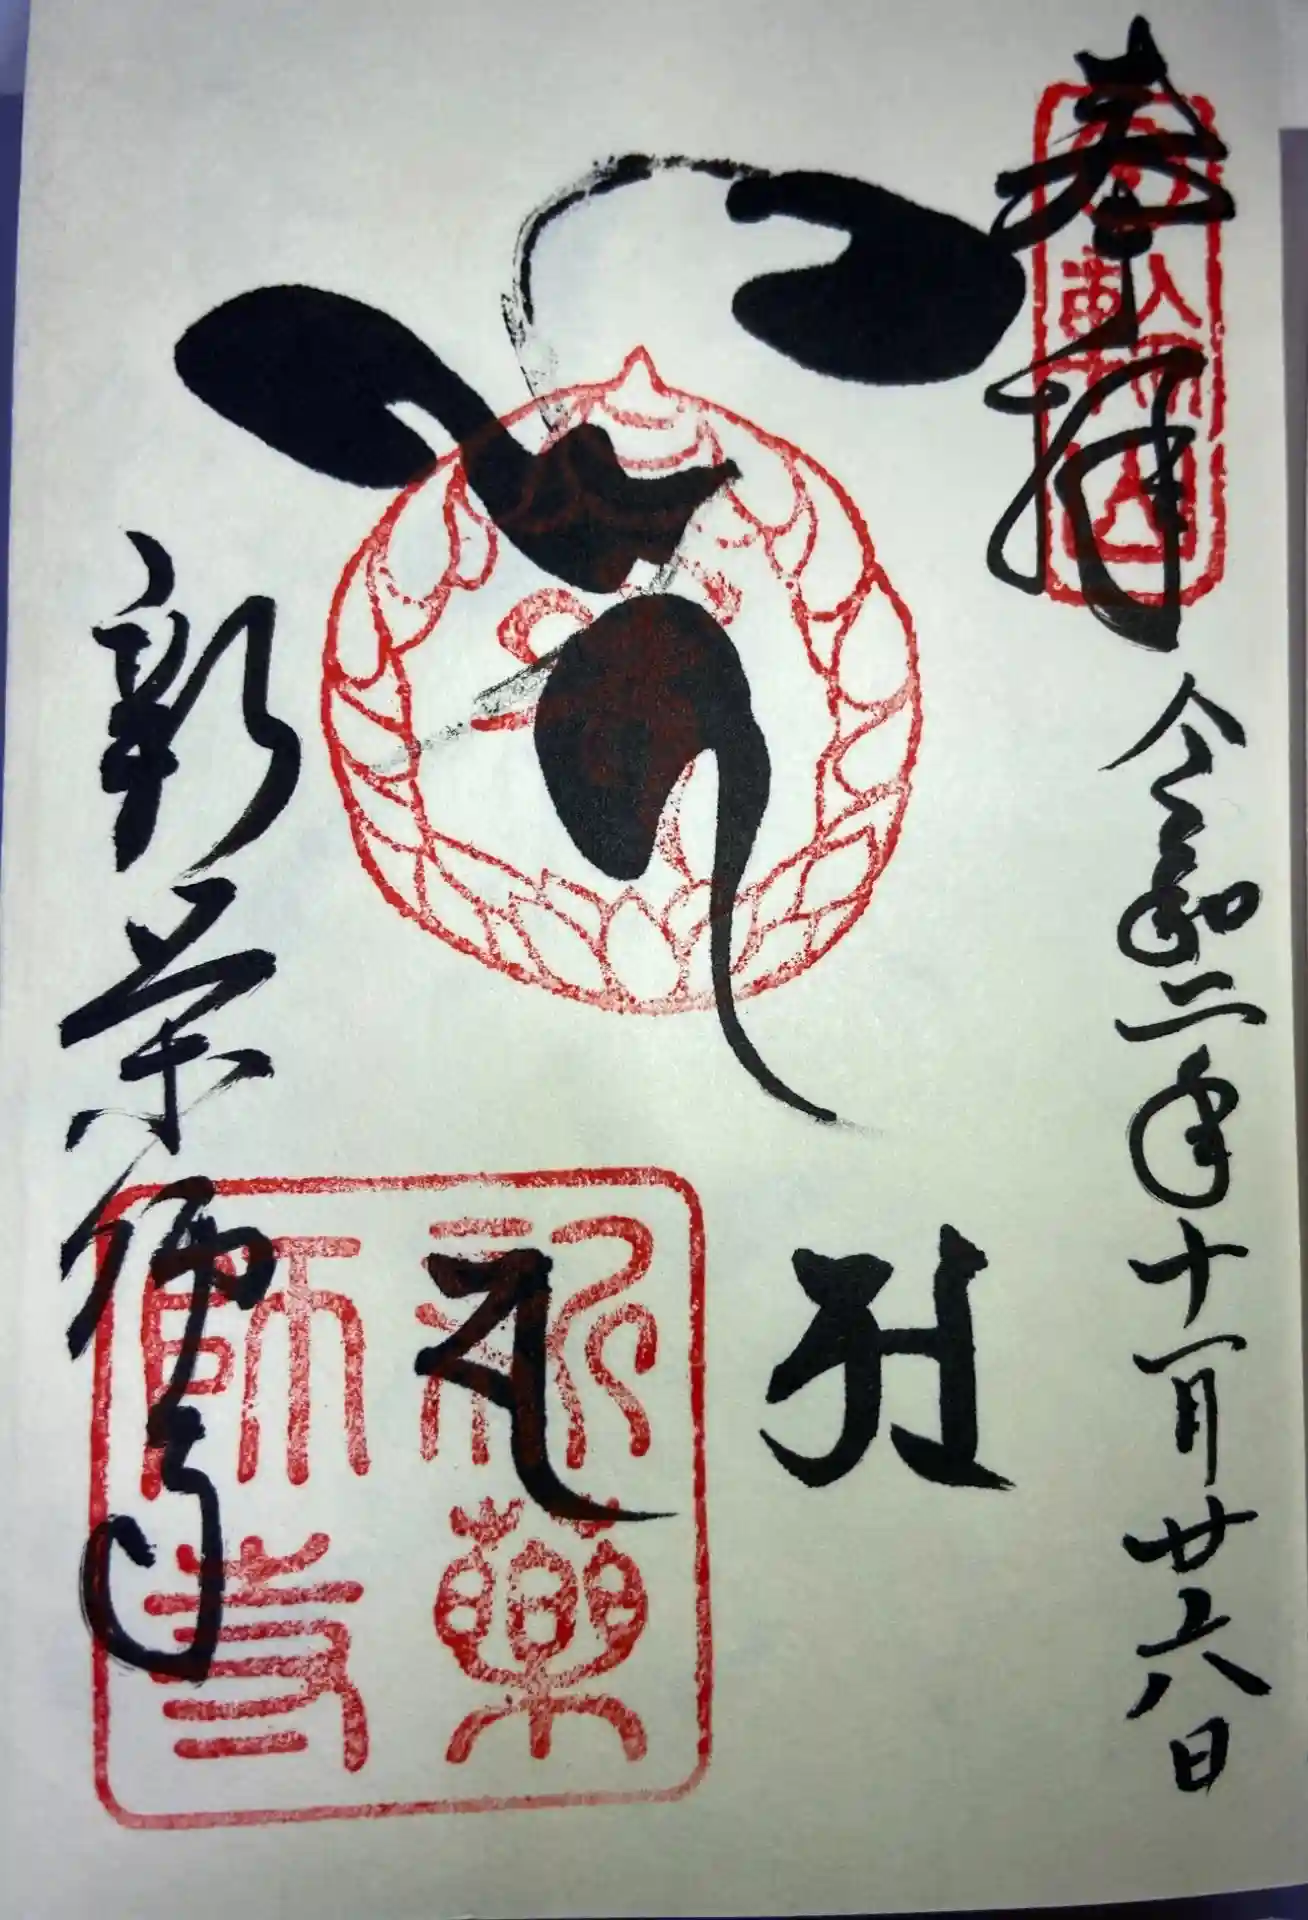 奉拝
日輪山
令和二年十一月廿六日
新薬師寺
新藥師寺